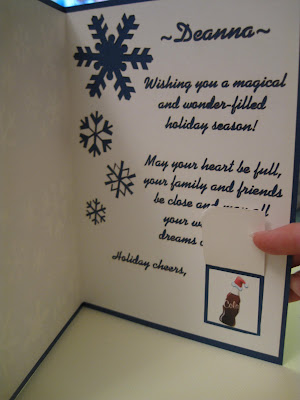 ~Deanna~
Wishing you a magical
and wonder-filled
holiday season!
May your heart be full,
your family and friends
be close and may all
your
dreams
Holiday cheers,